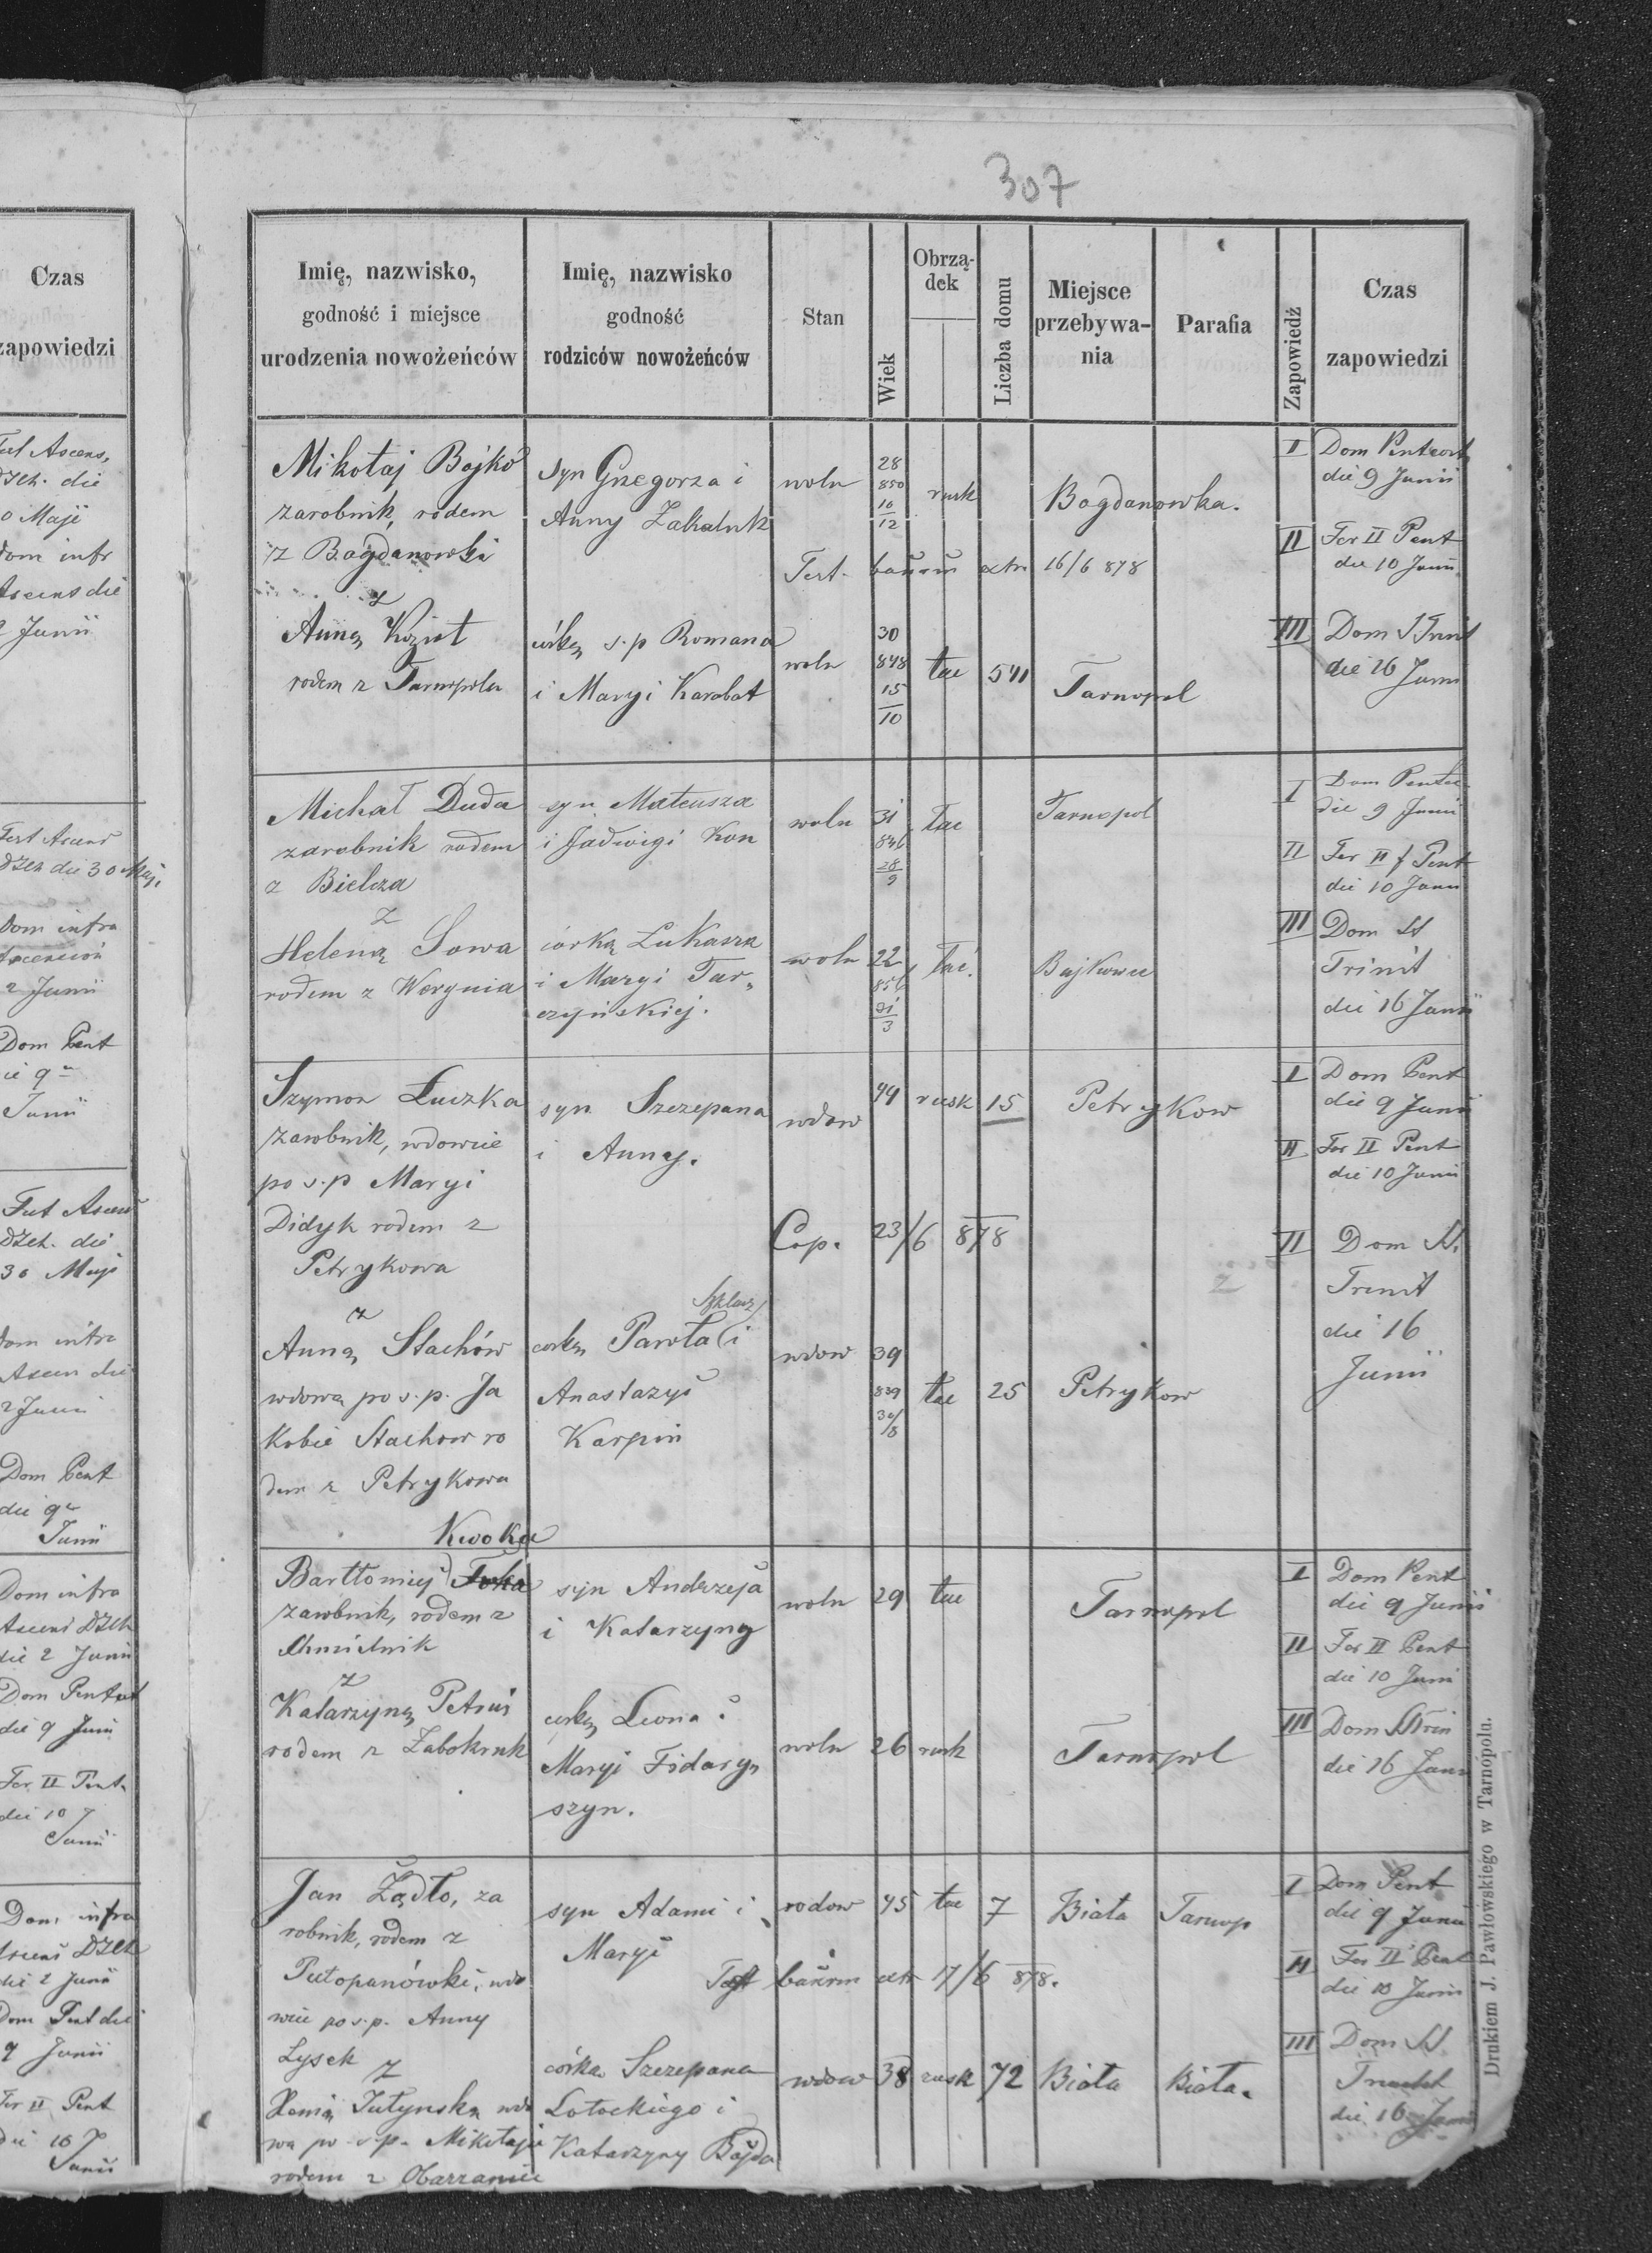 307
Czas
zapowiedzi
Dom infr
2 Junii
Dom infra
2 Junii
Dom Pent
Junii
30 Maji
Dom infra
2 Junii
Dom Pent
die 9
Junii
Dom infra
die 2 Junii
die 9 Junii
Fer II Pent
die 10
Junii
Dom infra
die 2 Junii
Dom Pent die
9 Junii
Fer II Pent
die 10
Junii
Imię, nazwisko,
godność i miejsce
urodzenia nowożeńców
Imię, nazwisko
godność
rodziców nowożeńców
Stan
Wiek
Obrzą-
dek
Liczba domu
Miejsce
przebywa-
nia
Parafia
Zapowiedź
Czas
zapowiedzi
Mikołaj Bojko
zarobnik, rodem
z Bogdanowki
syn Grzegorza i
Anny Zakaluk
woln
28
850
16
12
rusk
Bogdanowka.
I
die 9 Junii
II
Fer II Pent
die 10 Junii
Test. 16/6 878
z
Anną
rodem z Tarnopola
córką s.p Romana
i Maryi Karobat
woln
30
848
15
10
łac
541
Tarnopol
III
Dom S Trinit
die 16 Junii
Michał Duda
zarobnik rodem
z Bielcza
syn Mateusza
i Jadwigi Kon
woln
31
846
28
9
łac
Tarnopol
I
die 9 Junii
II
Fer II f Pent
die 10 Junii
z
Heleną Sowa
rodem z Werynia
córką Łukasza
i Maryi Tar„
czyńskiej.
woln
22
856
21
3
łać.
Bajkowce
III
Dom SS
Trinit
die 16 Junii
Szymon Łuczka
zarobnik, wdowiec
po s.p Maryi
Didyk rodem z
Petrykowa
syn Szczepana
i Anny.
wdow
44
rusk
15
Petrykow
I
Dom Pent
die 9 Junii
II
Fer II Pent
die 10 Junii
Cop. 23/6 878
z
Anną Stachów
wdową po s.p. Ja
kobie Stachow ro
dem z Petrykowa
corką Pawła i
Anastazyi
Karpin
wdow
39
839
30/8
łac
25
Petrykow
Dom SS.
Trinit
die 16
Junii
Kwoka
Bartłomiej
zarobnik, rodem z
Chmielnik
syn Andrzeja
i Katarzyny
woln
29
łac
Tarnopol
I
Dom Pent
die 9 Junii
II
Fer II Pent
die 10 Junii
z
Katarzyną Petruś
rodem z Załokruk
corką Leona i
Maryi Fidaryn
szyn.
woln
26
rusk
Tarnopol
III
Dom SS Trin
die 16 Junii
Jan Żądło, za
robnik, rodem z
Putopanówki, wdo
wiec po s.p. Anny
Łysek
syn Adama i
Maryi
wdow
45
łac
7
Biała
Tarnop
I
Dom Pent
die 9 Junii
17/6 878.
II
Fer II Pent
die 10 Junii
z
Xenią Jutynską wdo
wą po s.p. Mikołaju
rodem z
córka Szczepana
Łotockiego i
Katarzyny Bojda
wdow
38
rusk
72
Biała
Biała
III
Dom SS
die 16 Junii
Drukiem J. Pawłowskiego w Tarnopolu.